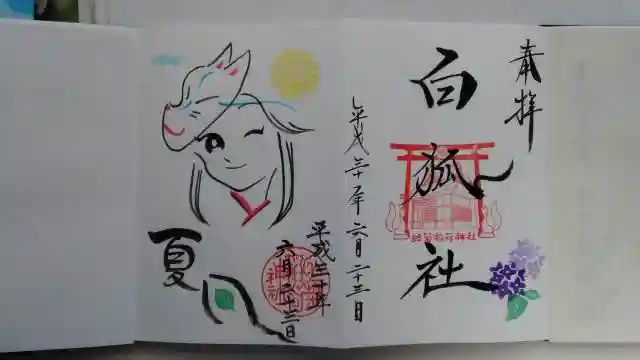 奉拝
白狐社
平成三十年六月二十三日
平成三十年
六月二十三日
夏